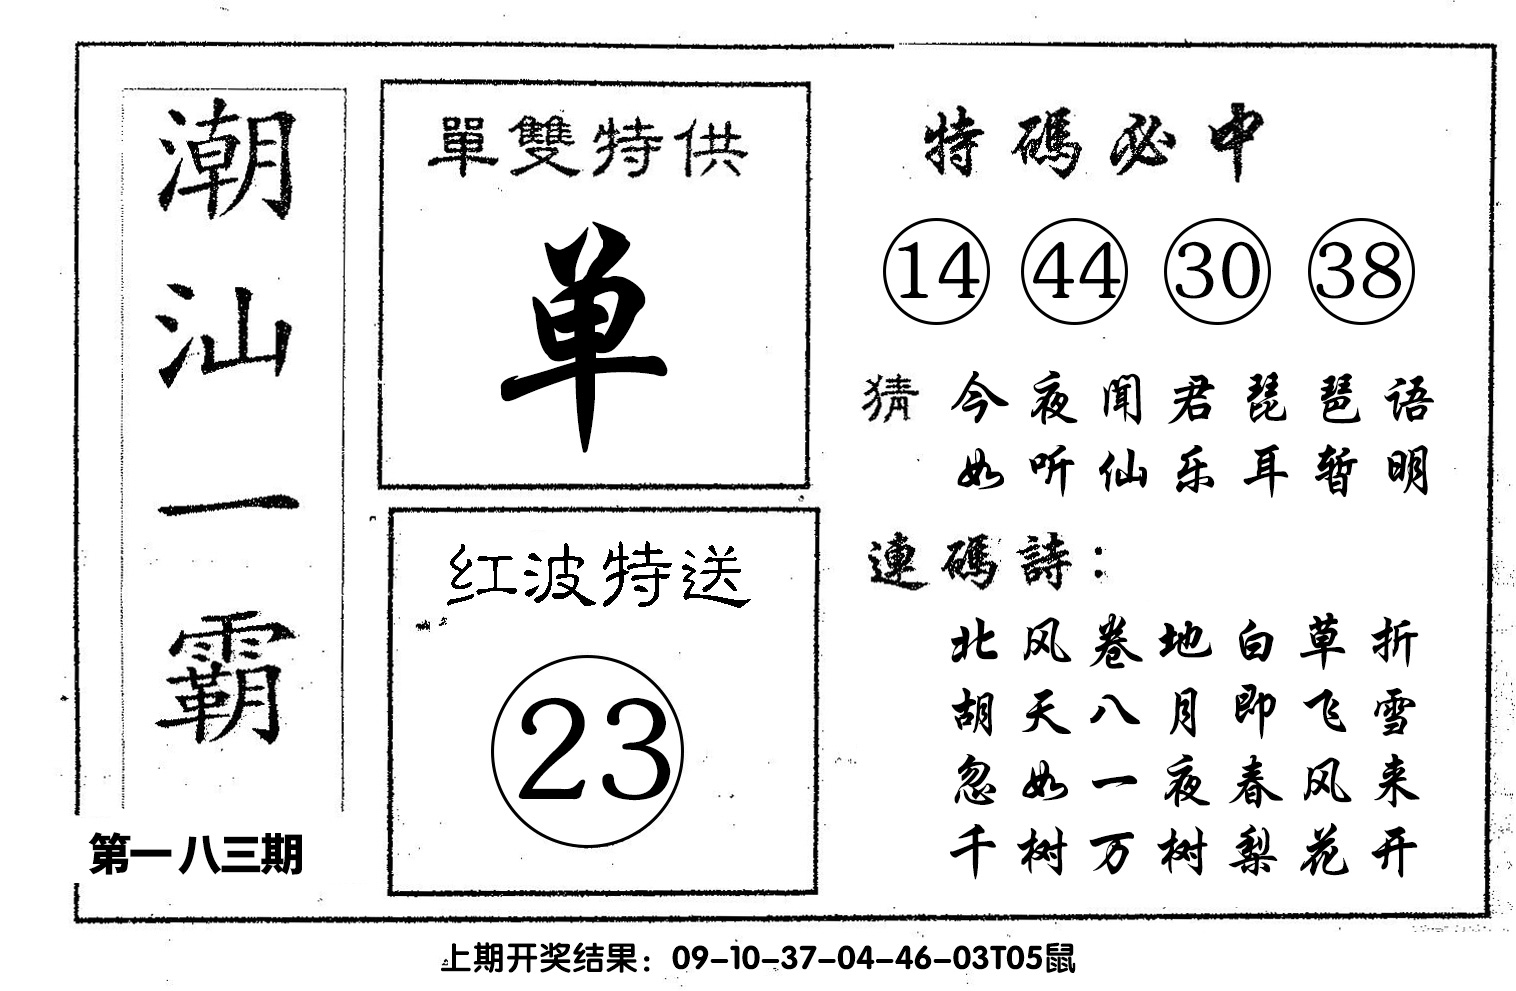 潮汕一霸
第一八三期
單雙特供
单
红波特送
23
特碼必中
14 44 30 38
猜 今夜闻君琵琶语
如听仙乐耳暂明
連碼詩：
北风卷地白草折
胡天八月即飞雪
忽如一夜春风来
千树万树梨花开
上期开奖结果：09-10-37-04-46-03T05鼠